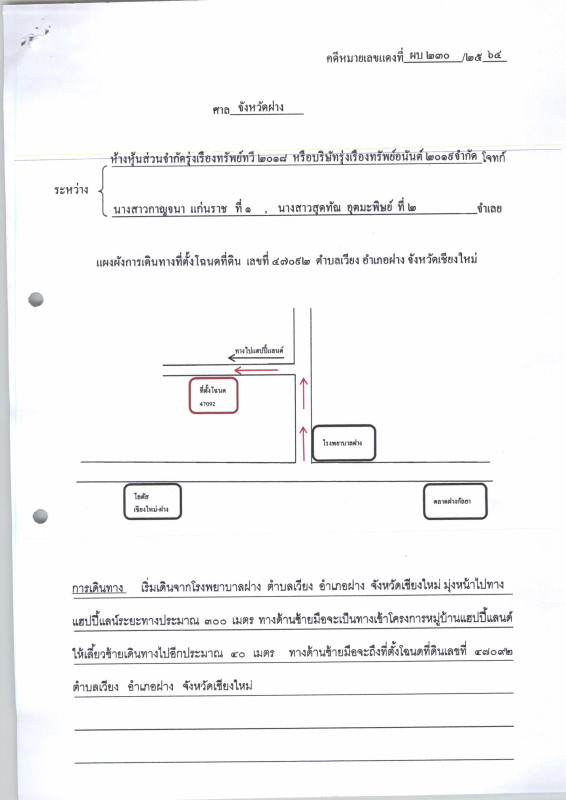 คดีหมายเลขแดงที่ ผบ ๒๓๐ /๒๕ ๖๔
ศาล จังหวัดฝาง
ห้างหุ้นส่วนจำกัดรุ่งเรืองทรัพย์ทวี ๒๐๑๘ หรือบริษัทรุ่งเรืองทรัพย์อนันต์ ๒๐๑๙จำกัด โจทก์
ระหว่าง
นางสาวกาญจนา แก่นราช ที่ ๑ , นางสาวสุดทัณ อุตมะพิษย์ ที่ ๒ จำเลย
แผงผังการเดินทางที่ตั้งโฉนดที่ดิน เลขที่ ๔๗๐๙๒ ตำบลเวียง อำเภอฝาง จังหวัดเชียงใหม่
ทางไปแฮปปี้แลนด์
ที่ตั้งโฉนด
47092
โรงพยาบาลฝาง
โลตัส
เชียงใหม่-ฝาง
ตลาดฝางกัลยา
การเดินทาง เริ่มเดินจากโรงพยาบาลฝาง ตำบลเวียง อำเภอฝาง จังหวัดเชียงใหม่ มุ่งหน้าไปทาง
แฮปปี้แลน์ระยะทางประมาณ ๓๐๐ เมตร ทางด้านซ้ายมือจะเป็นทางเข้าโครงการหมู่บ้านแฮปปี้แลนด์
ให้เลี้ยวซ้ายเดินทางไปอีกประมาณ ๔๐ เมตร ทางด้านซ้ายมือจะถึงที่ตั้งโฉนดที่ดินเลขที่ ๔๗๐๙๒
ตำบลเวียง อำเภอฝาง จังหวัดเชียงใหม่